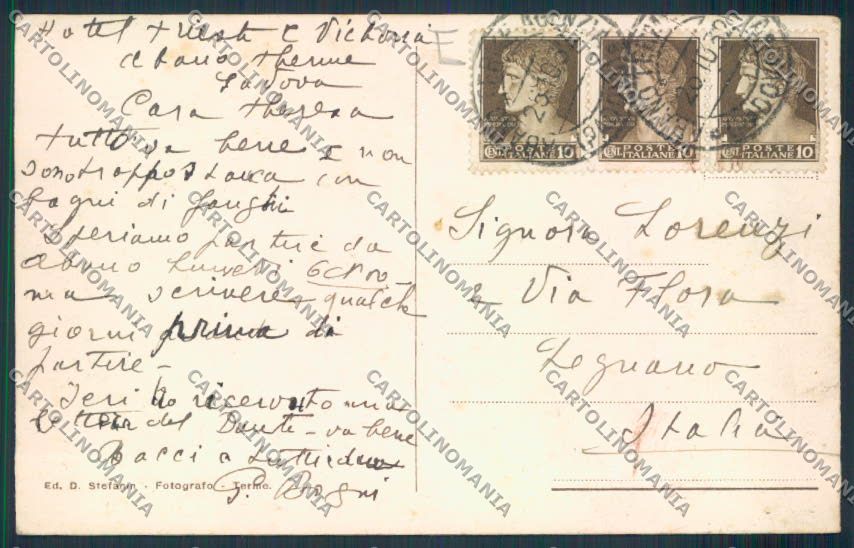 Hotel Trieste e Victoria
Abano Therme
Padova
Cara Theresa
tutto va bene e non
sono troppo stanca con
bagni di fanghi
Speriamo partire da
Abano lunedi 6 Nov
ma scrivere qualche
giorni prima di
partire -
Ieri ho ricevuto una
lettera del Dante - va bene
Bacci a tutti due
Ed. D. Stefanin - Fotografo - Terme.
POSTE ITALIANE
CENT. 10
POSTE ITALIANE
CENT. 10
POSTE ITALIANE
CENT. 10
Signora Lorenzi
2 Via Flora
Legnano
Italia
CARTOLINOMANIA